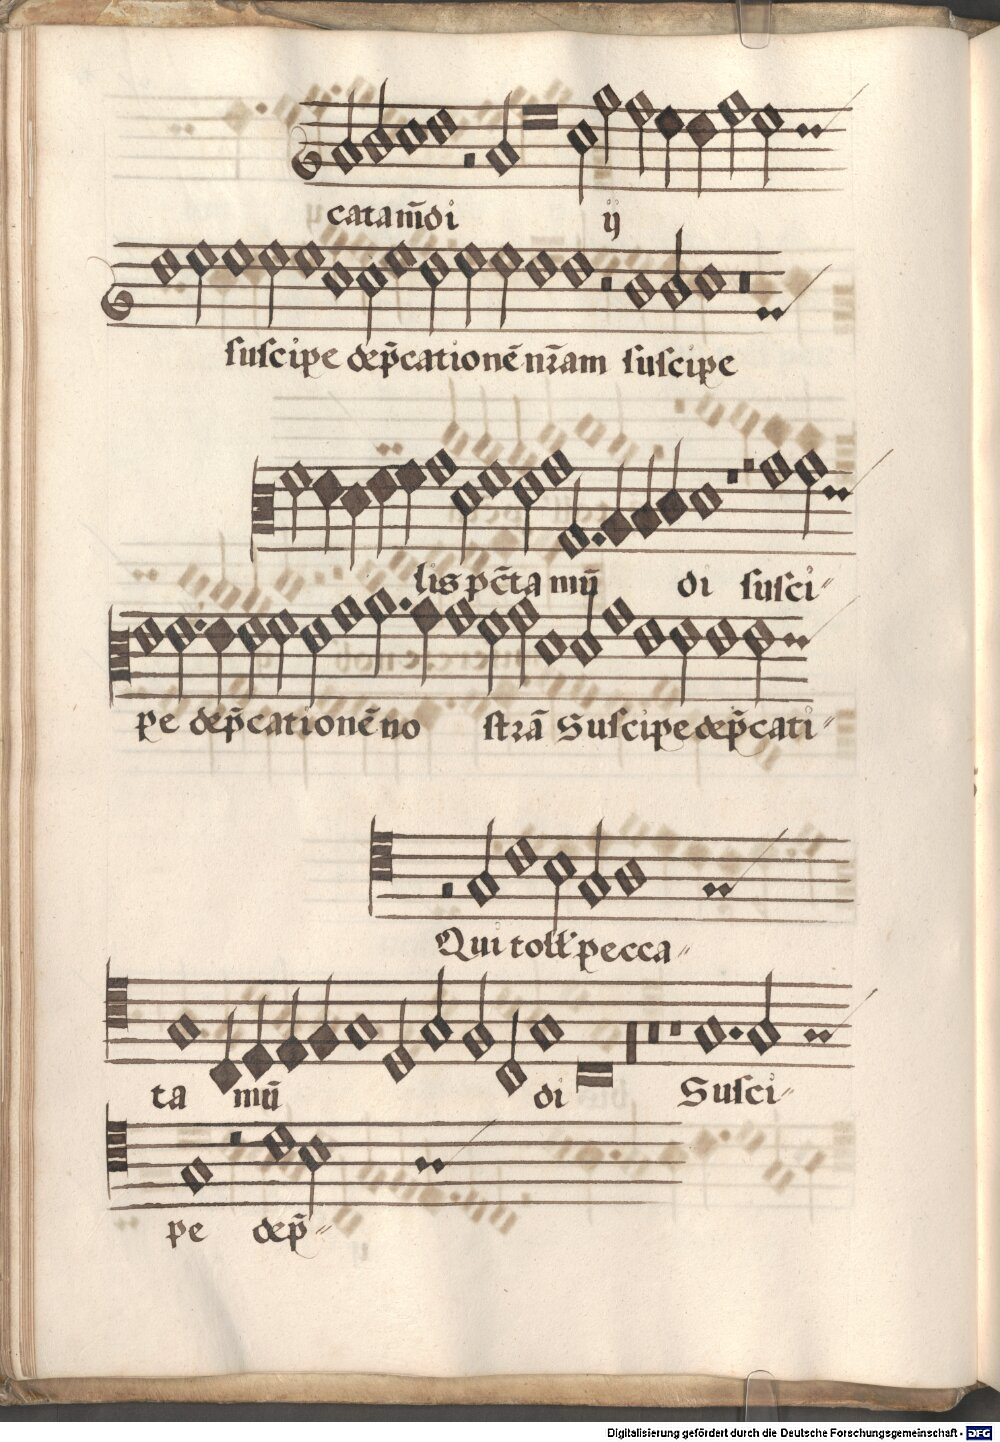 catam̄di ij
suscipe dep̄cationē nr̄am suscipe
lis pc̄ta mū di susci〃
pe dep̄cationē no strā Suscipe dep̄cati〃
Qui toll' pecca〃
ta mū di Susci〃
pe dep̄〃
Digitalisierung gefördert durch die Deutsche Forschungsgemeinschaft - DFG